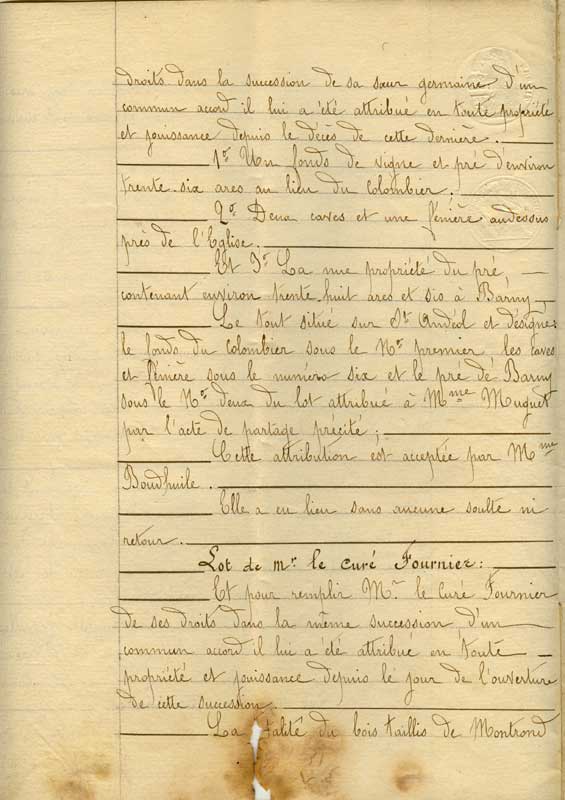 droits dans la succession de sa sœur germaine d'un
commun accord il lui a été attribué en toute propriété
et jouissance depuis le décès de cette dernière.
1º Un fonds de vigne et pré d'environ
trente-six ares au lieu du Colombier.
2º Deux caves et une fénière audessus
près de l'Eglise.
Et 3º La nue propriété du pré,
contenant environ trente-huit ares et sis à Barny
Le tout situé sur St Andéol et désigné:
le fonds du Colombier sous le Nº premier les caves
et fénière sous le numéro six et le pré de Barny
sous le Nº deux du lot attribué à Mme Muguet
par l'acte de partage précité;
Cette attribution est acceptée par Mme
Boudhuile.
Elle a eu lieu sans aucune soulte ni
retour.
Lot de Mr le Curé Fournier:
Et pour remplir Mr le Curé Fournier
de ses droits dans la même succession d'un
commun accord il lui a été attribué en toute
propriété et jouissance depuis le jour de l'ouverture
de cette succession.
La du bois taillis de Montrond